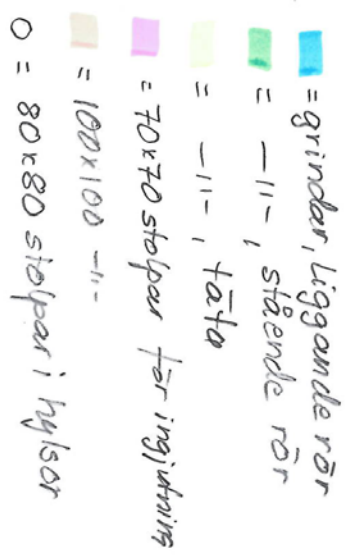 = grindar, liggande rör
= -"-, stående rör
= -"-, täta
= 70x70 stolpar för ingjutning
= 100x100 -"-
O = 80x80 stolpar i hylsor